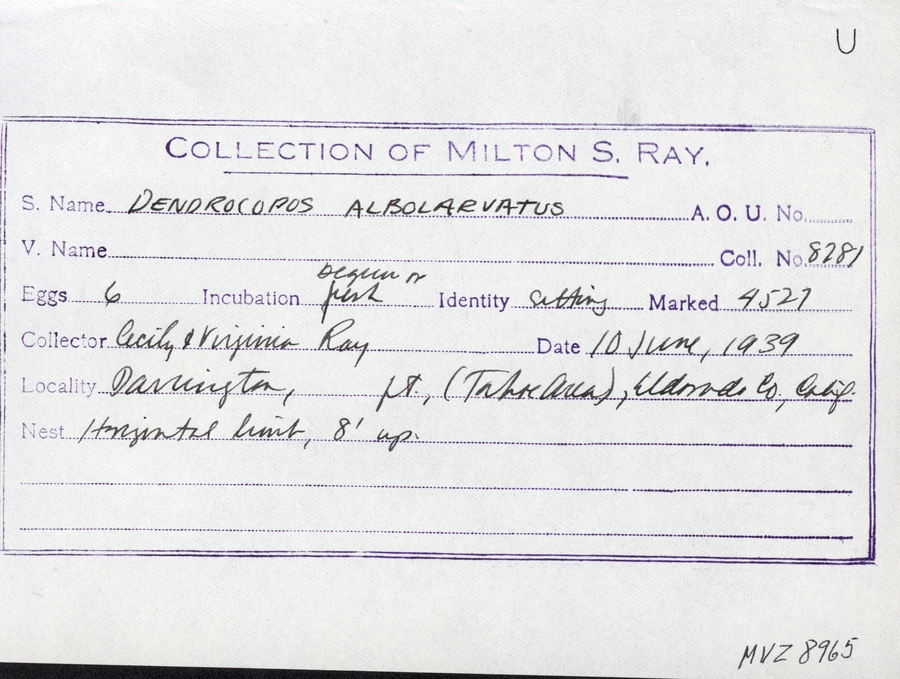 U
COLLECTION OF MILTON S. RAY.
S. Name DENDROCOPOS ALBOLARVATUS A. O. U. No.
V. Name Coll. No. 8281
begun or
Eggs 6 Incubation fresh Identity sitting Marked 4527
Collector Cecily & Virginia Ray Date 10 June, 1939
Locality Darrington, ft., (Tahoe Area), Eldorado Co., Calif.
Nest Horizontal limb, 8' up.
MVZ 8965